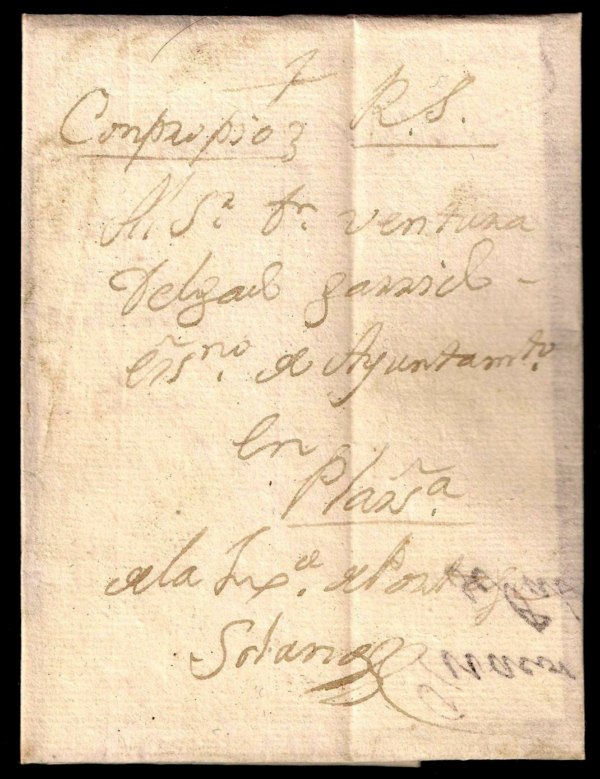 Conpropio R.S.
Al Sr. Dn. ventura
Delgado garrido
Essno. de Ayuntamto.
en
Plazna.
de la Jxa. de Portug
Solana